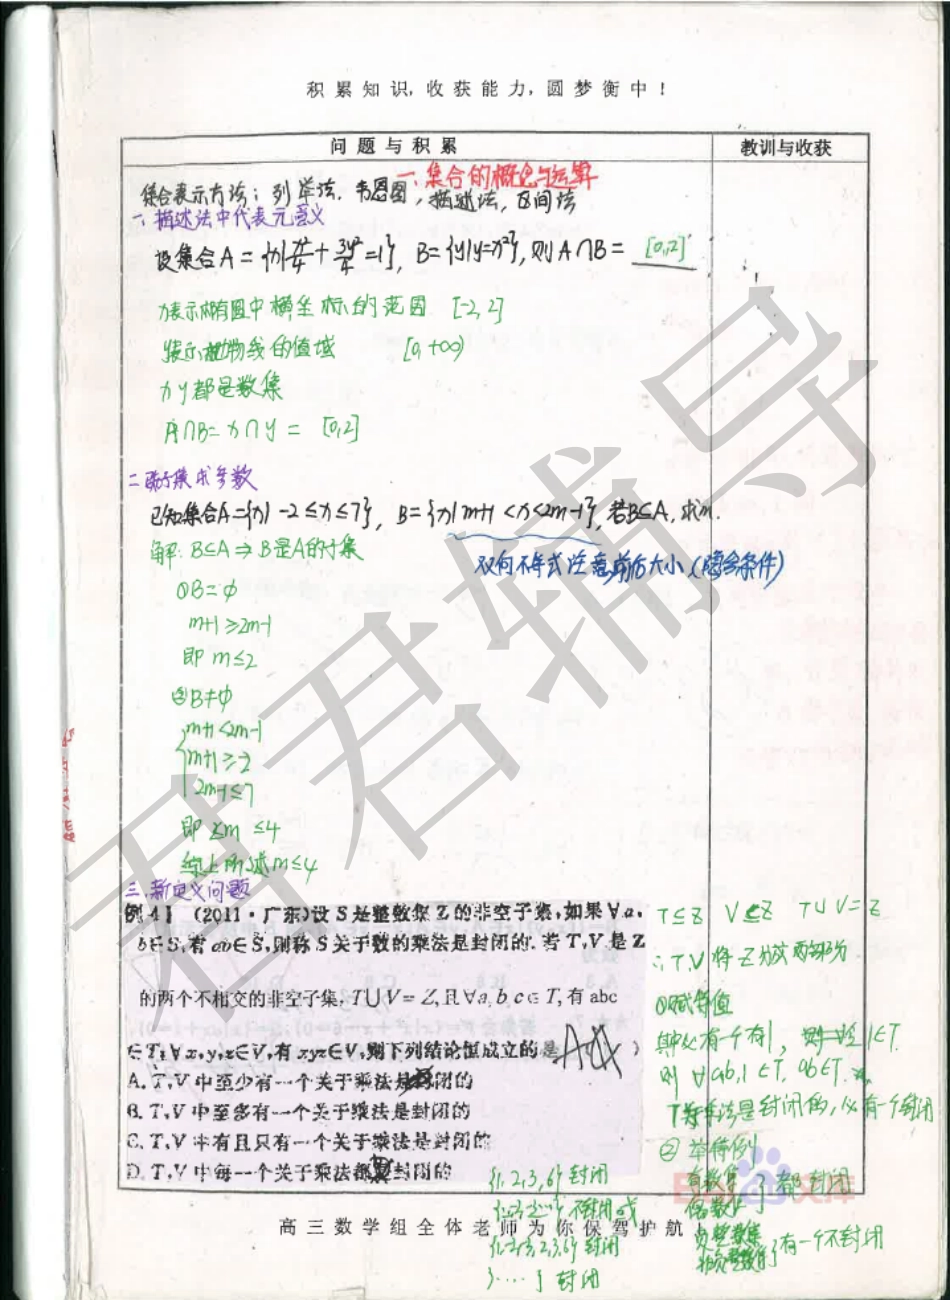 积累知识,收获能力,圆梦衡中!
问题与积累
教训与收获
一、集合的概念与运算
集合表示方法:列举法.韦恩图,描述法,区间法
一、描述法中代表元意义
设集合A={x|x²/4+3y²/4=1}, B={y|y=x²},则A∩B= [0,2]
x表示椭圆中横坐标的范围 [-2,2]
y表示抛物线的值域 [0,+∞)
x y都是数集
A∩B= x∩y = [0,2]
二、子集求参数
已知集合A={x|-2≤x≤7}, B={x|m+1<x<2m-1},若B⊆A,求m.
双向不等式注意前后大小(隐含条件)
解:B⊆A⇒B是A的子集
①B=∅
m+1≥2m-1
即 m≤2
②B≠∅
m+1<2m-1
m+1≥-2
2m-1≤7
即 2<m≤4
综上所述m≤4
三、新定义问题
例4】(2011·广东)设S是整数集Z的非空子集,如果∀a,
b∈S,有ab∈S,则称S关于数的乘法是封闭的.若T,V是Z
的两个不相交的非空子集,T⋃V=Z,且∀a,b,c∈T,有abc
∈T;∀x,y,z∈V,有xyz∈V,则下列结论恒成立的是 )
A.T,V中至少有一个关于乘法是封闭的
B.T,V中至多有一个关于乘法是封闭的
C.T,V中有且只有一个关于乘法是封闭的
D.T,V中每一个关于乘法都是封闭的
T⊆Z V⊆Z T∪V=Z
∴T,V将Z分成两部分
①赋特值
其中必有一个有1, 1∈T.
则∀ab,1∈T, ab∈T.
T对乘法是封闭的,必有一个封闭
②举特例
奇数集
偶数集
}都封闭
负整数集
}有一个不封闭
封闭
不封闭
封闭
{……} 封闭
高三数学组全体老师为你保驾护航
君君辅导
Bai 文库